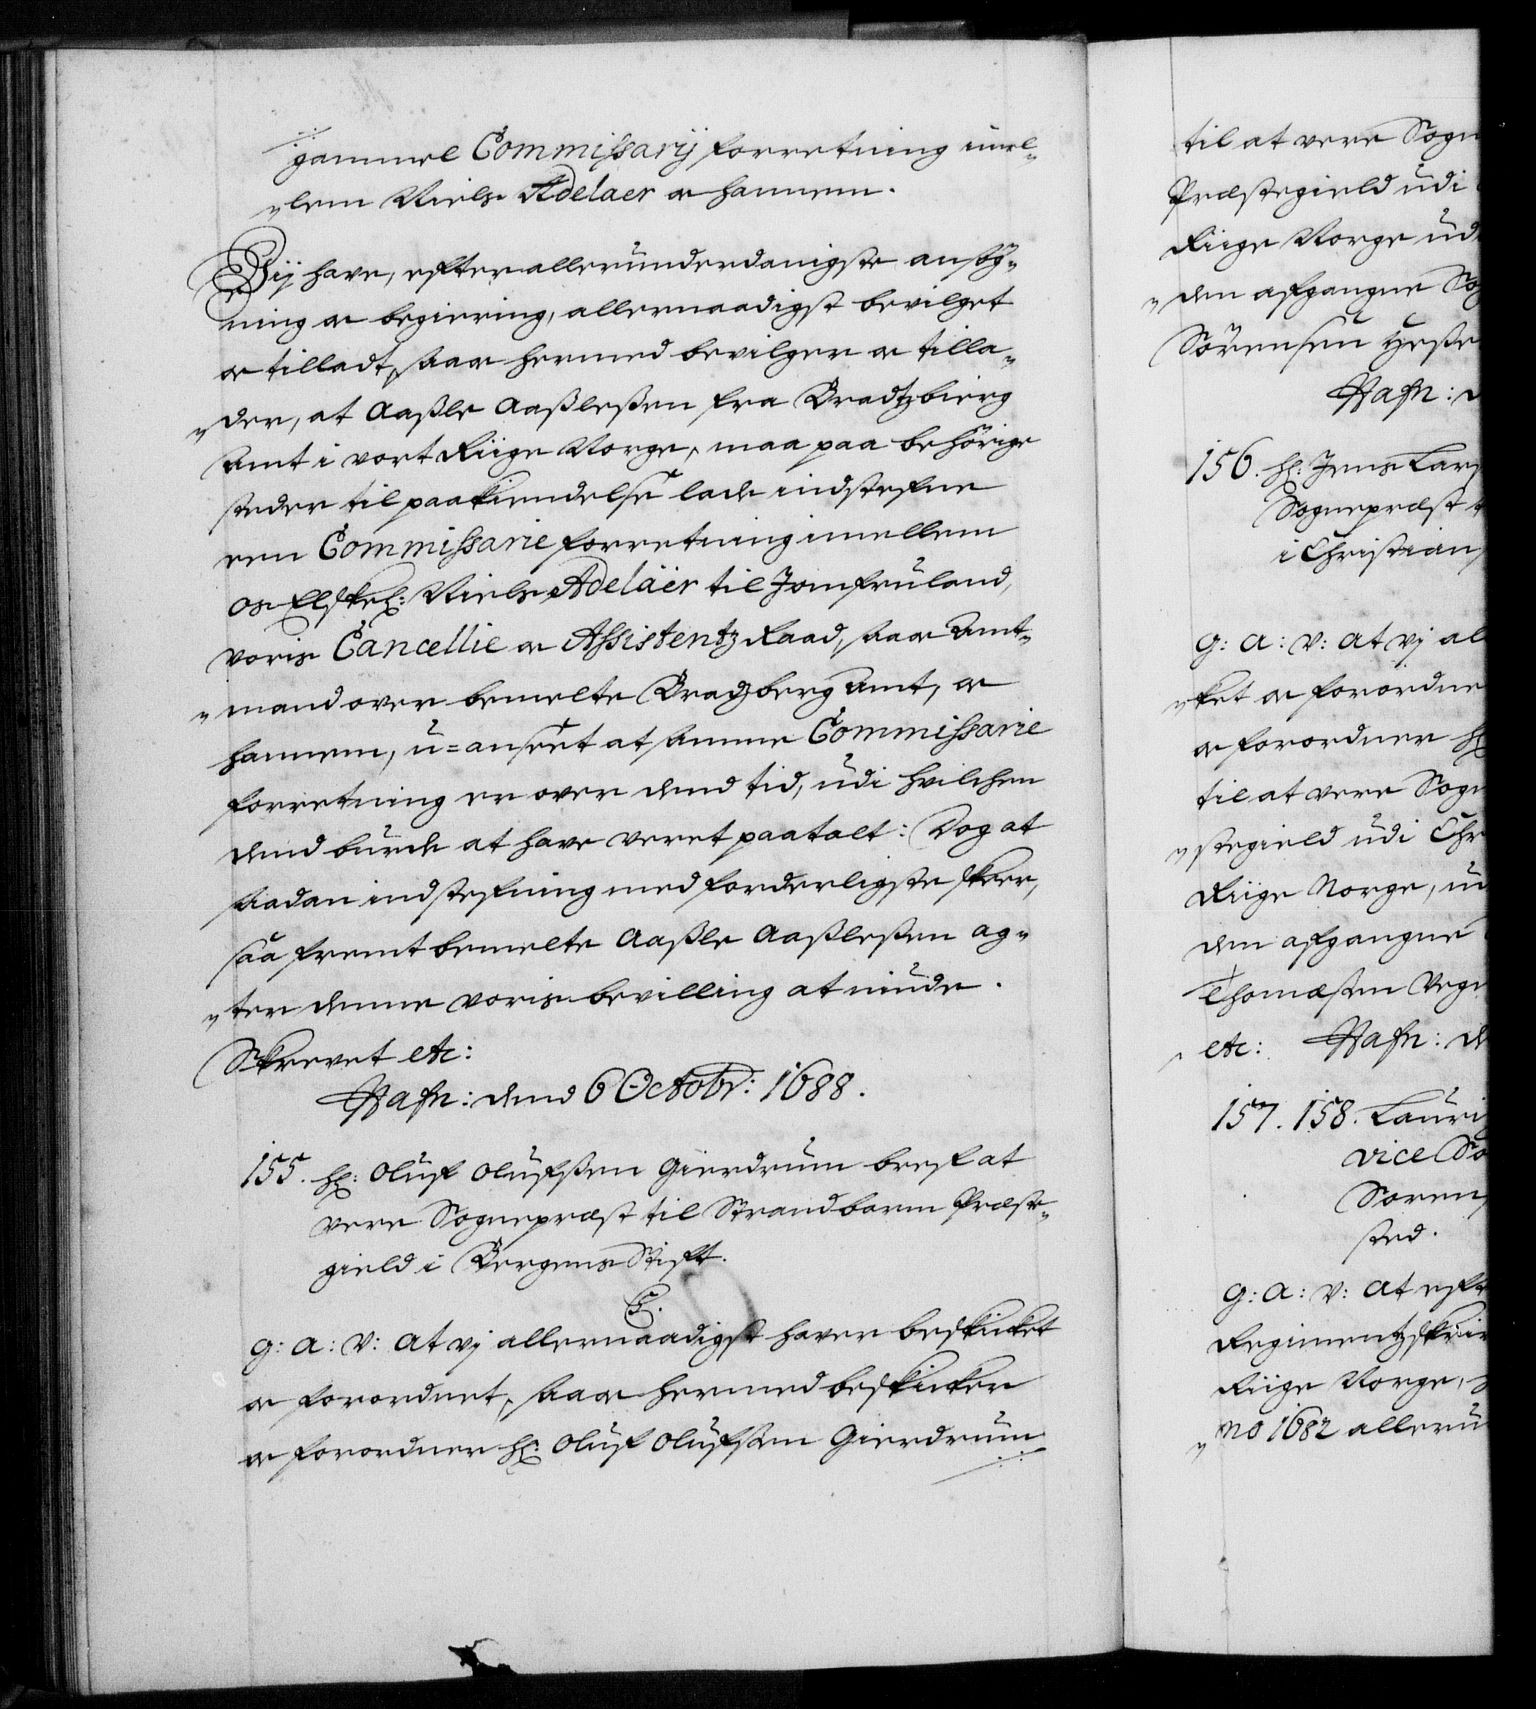 gammel Commissarij forretning imel„
„lem Niels Adelaer oc hannem.
Vij have, efter allerunderdanigste ansög„
ning oc begiering, allernaadigst bevilget
oc tilladt, saa oc hermed bevilger oc tilla„
„der, at Aaßle Aaßleßen fra Bradtzbierg
Amt i vort Riige Norge, maa paa behörige
steder til paakiendelse lade indstefne
een Commissarie forretning imellem
os Elskel: Niels Adelaer til Jomfruland,
voris Cancellie oc Assistentz Raad, saa oc Amt„
„mand over bemelte Bratzberg Amt, oc
hannem, u=anseet at samme Commissarie
forretning er over dend tid, udi hvilchen
dend burde at have veret paatalt: Dog at
saadan indstefning med forderligste skeer,
saa fremt bemelte Aaßle Aaßleßen ag„
„ter denne voris bevilling at niude.
Skrevet etc:
Hafn: dend 6 Octobr: 1688.
155. Hr: Oluf Olufßen Gierdrum bref at
vere Sognepræst til Strandbarm Præste„
gield i Bergens Stift.
C5.
G: A: V: At vj allernaadigst haver beskicket
oc forordnet, saa oc hermed beskicker
oc forordner Hr: Oluf Olufßen Gierdrum
til at vere Sogn
Præstegield udi
Riige Norge ud
„den afgangne Sog
Sörensøn Heste
Hafn: d
156. Hr: Jens Lars
Sognepræst t
i Christian
G: A: V: At vj al
„ket oc forordne
oc forordner Hr
til at vere Sogn
„stegield udi Chr
Riige Norge, ud
den afgangne
Thomæßen Vegn
etc: Hafn: d
157. 158. Lauri
vice So
Soren
sted.
G: A: V: At efte
Regimentzskriv
Riige Norge,
„no 1682 alleru